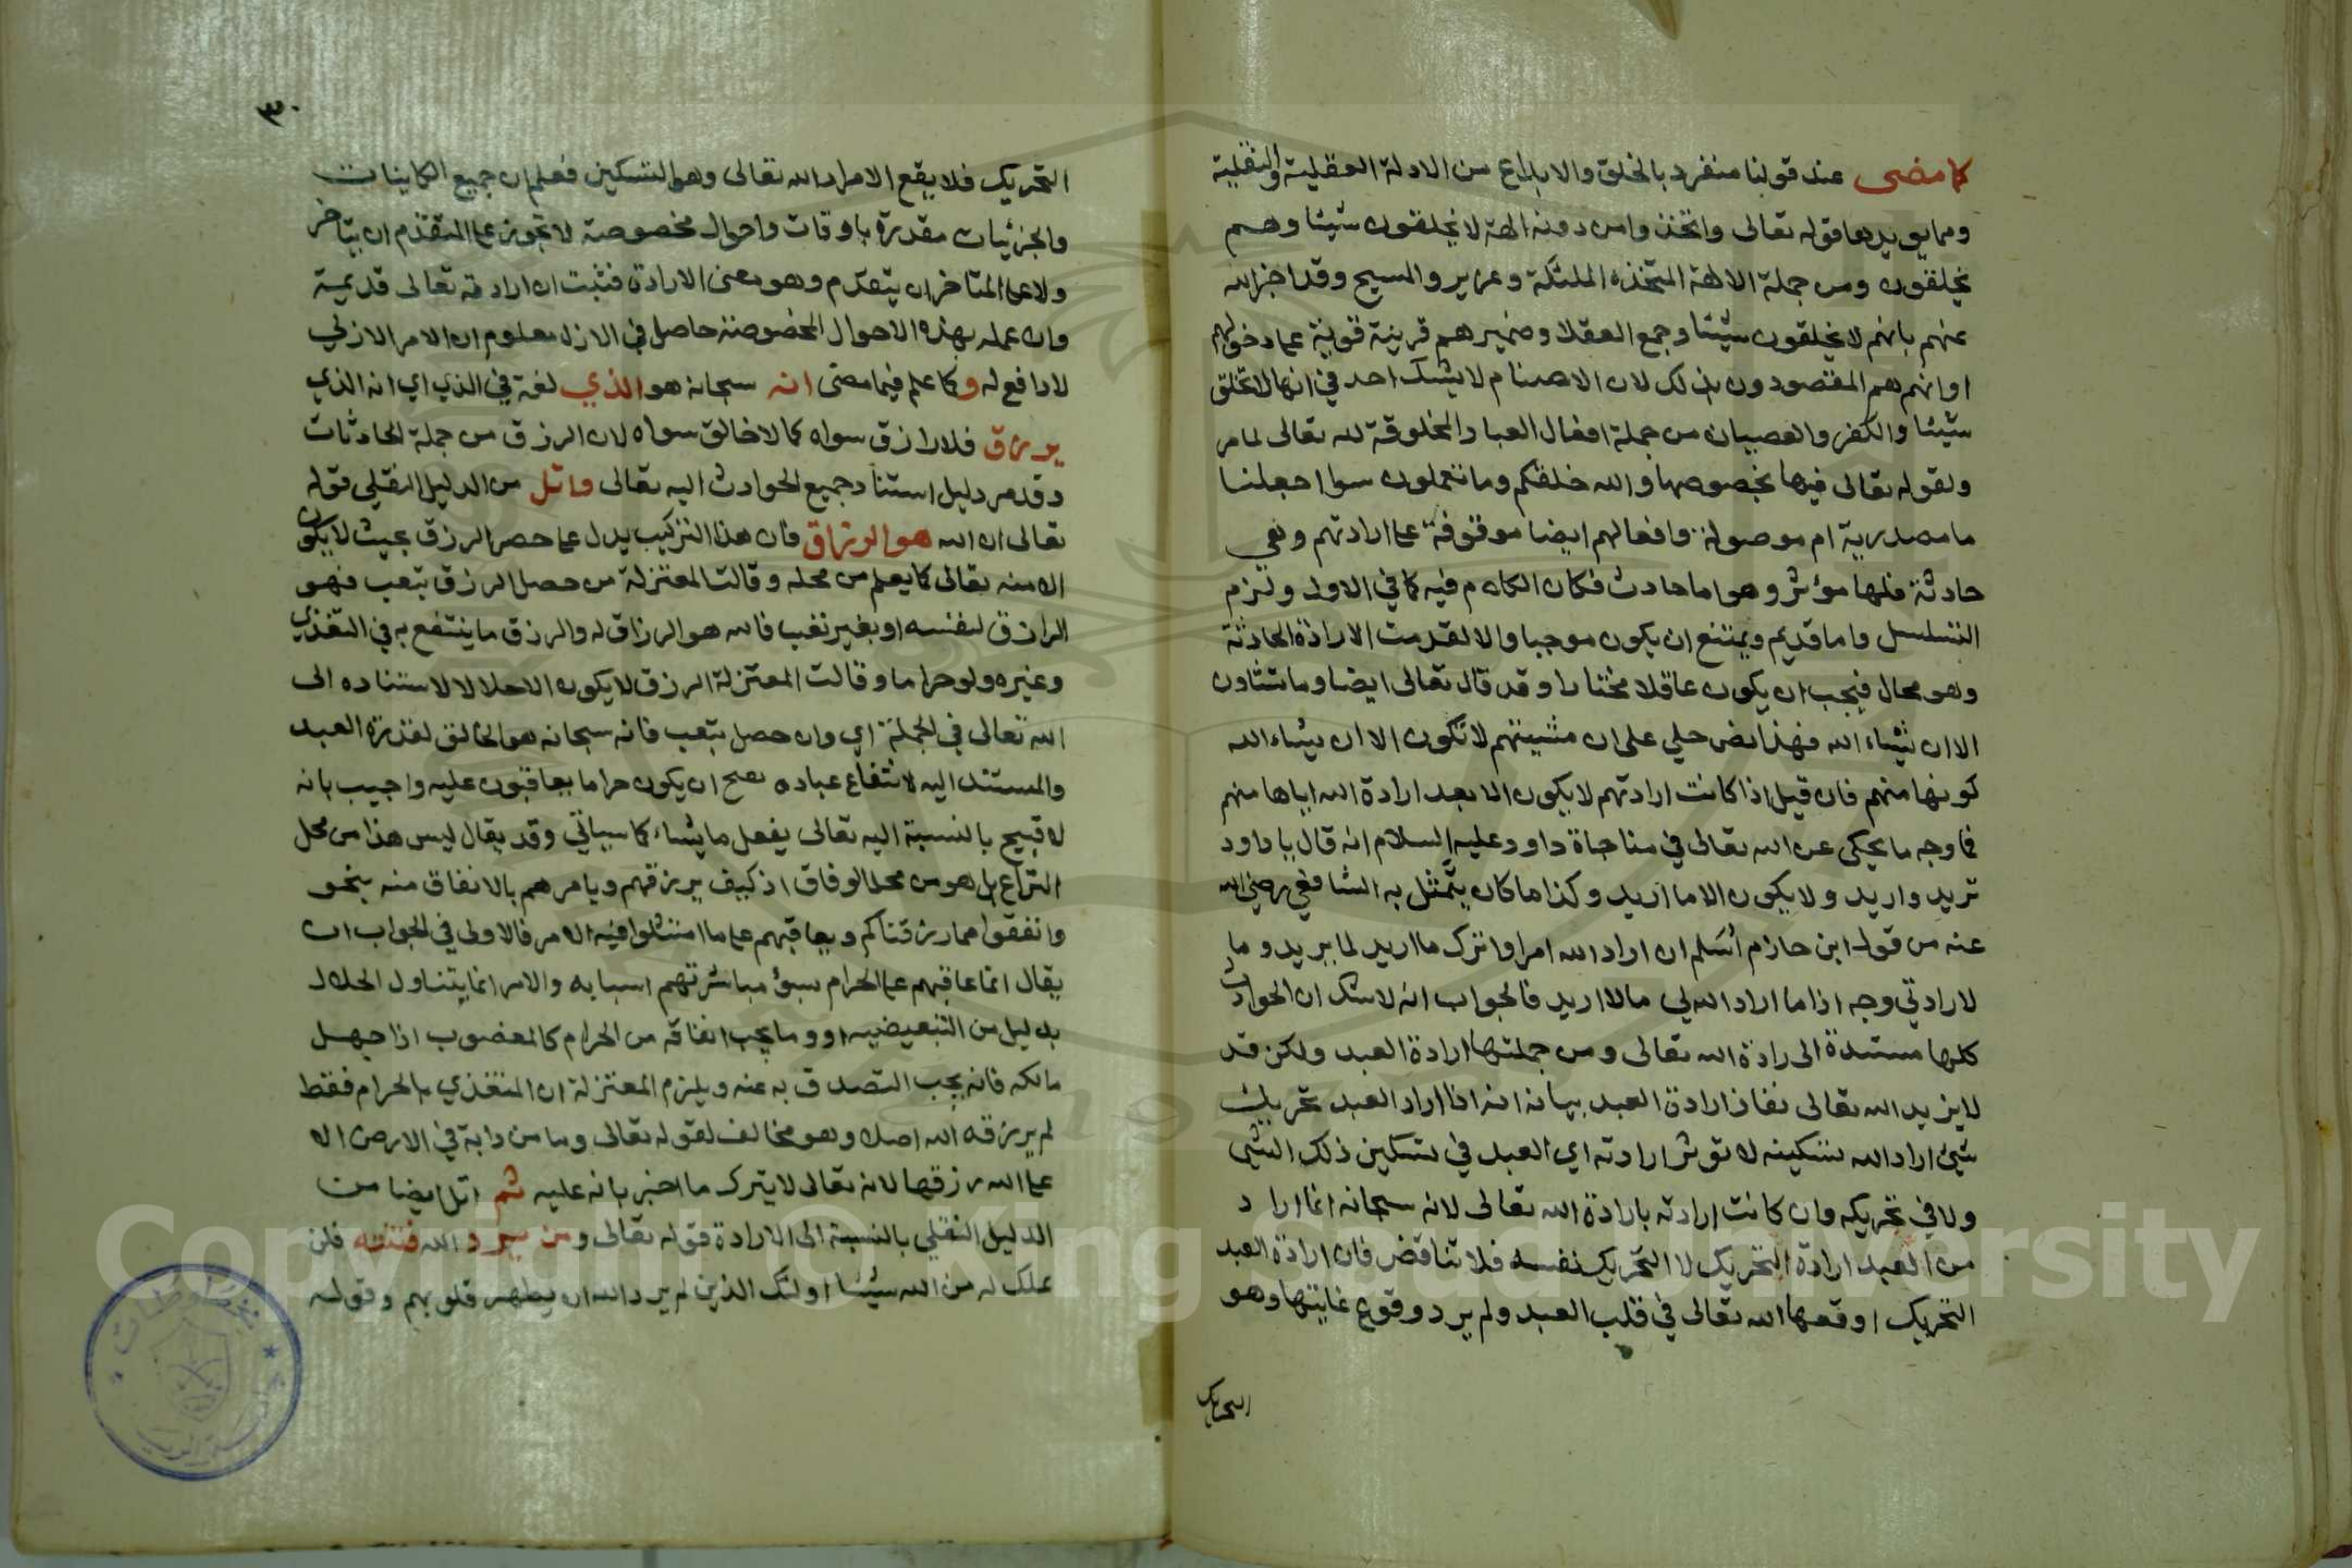 كما مضى عند قولنا منفرد بالخلق والابداع من الادلة العقلية والنقلية
ومما يويدها قوله تعالى واتخذوا من دونه الهة لا يخلقون شيئا وهم
يخلقون ومن جملة الالهة المتخذة الملئكة وعزير والمسيح وقد اخبر الله
عنهم بانهم لا يخلقون شيئا وجمع العقلا وضميرهم قرينة قوية على دخولهم
او انهم هم المقصودون بذلك لان الاصنام لا يشك احد في انها لا تخلق
شيئا والكفر والعصيان من جملة افعال العباد المخلوقة لله تعالى لما مر
ولقوله تعالى فيها بخصوصها والله خلقكم وما تعملون سوا جعلنا
ما مصدرية ام موصولة وافعالهم ايضا موقوفة على ارادتهم وهي
حادثة فلها مؤثر وهو اما حادث فكان الكلام فيه كما في الاول ولزم
التسلسل واما قديم ويمتنع ان يكون موجبا والا لقدمت الارادة الحادثة
وهو محال فيجب ان يكون عاقلا مختارا وقد قال تعالى ايضا وما تشاون
الا ان يشاء الله فهذا نص جلي على ان مشيئتهم لا تكون الا ان يشاء الله
كونها منهم فان قيل اذا كانت ارادتهم لا يكون الا بعد ارادة الله اياها منهم
فما وجه ما يحكى عن الله تعالى في مناجاة داود عليه السلام انه قال يا داود
تريد واريد ولا يكون الا ما اريد وكذا ما كان يتمثل به الشافعي رضي الله
عنه من قول ابن حازام أسلم ان اراد الله امرا واترك ما اريد لما يريد وما
لارادتي وجه اذا ما اراد الله لي ما لا اريد فالجواب انه لا شك ان الحوادث
كلها مستندة الى رادة الله تعالى ومن جملتها ارادة العبد ولكن قد
لا يريد الله تعالى نفاذ ارادة العبد بيانه انه اذا اراد العبد تحريك
شيئ اراد الله تسكينه لا توثر ارادته اي العبد في تسكين ذلك الشيى
ولا في تحريكه وان كانت ارادته بارادة الله تعالى لانه سبحانه انما اراد
من العبد ارادة التحريك لا التحريك نفسه فلا تناقض فان ارادة العبد
التحريك اوقعها الله تعالى في قلب العبد ولم يرد وقوع غايتها وهو
التحريك
٣٠
التحريك فلا يقع الا مراد الله تعالى وهو التسكين فعلم ان جميع الكاينات
والجزئيات مقدرة باوقات واحوال مخصوصة لا تجوز على المتقدم ان يتاخر
ولا على المتاخر ان يتقدم وهو معنى الارادة فثبت ان ارادته تعالى قديمية
وان علمه بهذه الاحوال المخصوصة حاصل في الازل معلوم ان الامر الازلي
لا دافع له وكما علم فيما مضى انه سبحانه هو الذي لغة في الذي اي انه الذي
يرزق فلا رازق سواه كما لا خالق سواه لان الرزق من جملة الحادثات
وقد مر دليل استناد جميع الحوادث اليه تعالى واتل من الدليل النقلي قوله
تعالى ان الله هو الرزاق فان هذا التركيب يدل على حصر الرزق بحيث لا يكون
الا منه تعالى كما يعلم من محله وقالت المعتزلة من حصل الرزق بتعب فهو
الرازق لنفسه او بغير تعب فالله هو الرزاق له والرزق ما ينتفع به في التغذي
وغيره ولو حراما وقالت المعتزلة الرزق لا يكون الا حلالا لاستناده الى
الله تعالى في الجملة اي وان حصل بتعب فانه سبحانه هو الخالق لقدرة العبد
والمستند اليه لانتفاع عباده يصح ان يكون حراما يعاقبون عليه واجيب بانه
لا قبيح بالنسبة اليه تعالى يفعل ما يشاء كما سياتي وقد يقال ليس هذا من محل
النزاع بل هو من محل الوفاق اذ كيف يرزقهم ويامرهم بالانفاق منه بنحو
وانفقوا مما رزقناكم ويعاقبهم على ما امتثلوا فيه الامر فالاولى في الجواب ان
يقال انما عاقبهم على الحرام بسوء مباشرتهم اسبابه والامر انما يتناول الحلال
بدليل من التبعيضيه او وما يجب انفاقه من الحرام كالمغصوب اذا جهل
مالكه فانه يجب التصدق به عنه ويلزم المعتزلة ان المتغذي بالحرام فقط
لم يرزقه الله اصلا وهو مخالف لقوله تعالى وما من دابة في الارض الا
على الله رزقها لانه تعالى لا يترك ما اخبر بانه عليه ثم اتل ايضا من
الدليل النقلي بالنسبة الى الارادة قوله تعالى ومن يرد الله فتنته فلن
تملك له من الله شيئا اولئك الذين لم يرد الله ان يطهر قلوبهم وقوله
Copyright © King Saud University